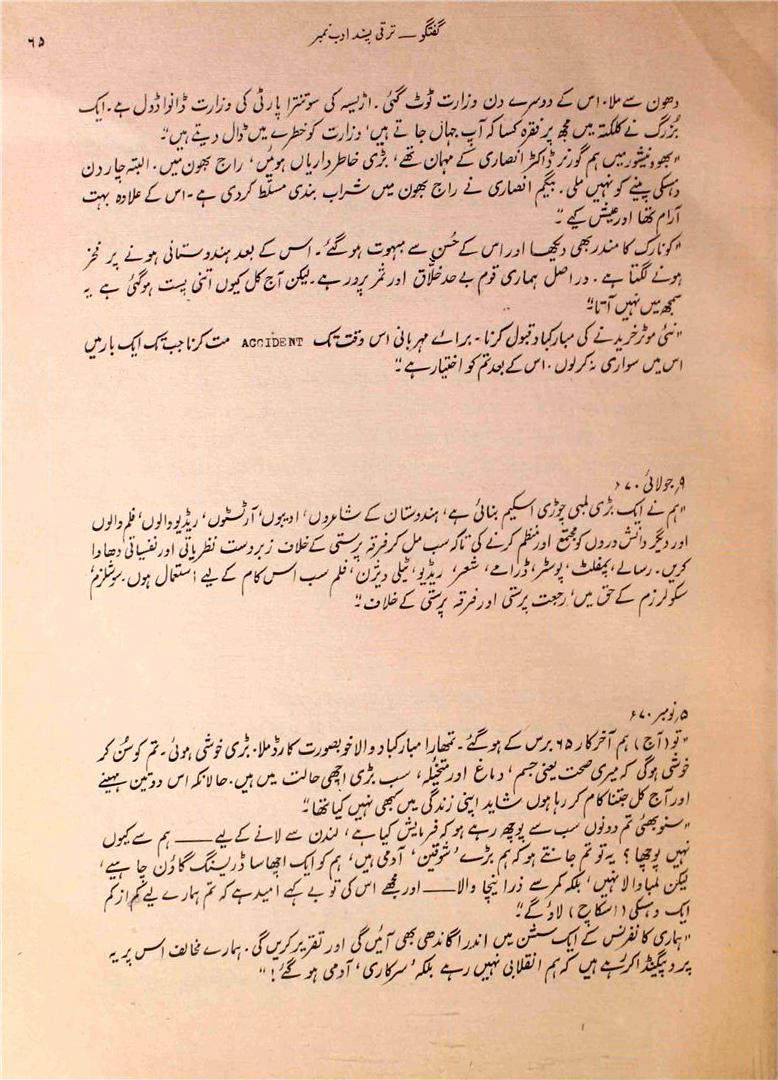 گفتگو — ترقی پسند ادب نمبر
۶۵
دھون سے ملا۔ اس کے دوسرے دن وزارت ٹوٹ گئی۔ اڑیسہ کی سوتنترا پارٹی کی وزارت ڈانواڈول ہے۔ ایک
بزرگ نے کلکتہ میں مجھ پر فقرہ کسا کہ آپ جہاں جاتے ہیں، وزارت کو خطرے میں ڈال دیتے ہیں"۔
"بھوونیشور میں ہم گورنر ڈاکٹر انصاری کے مہمان تھے، بڑی خاطرداریاں ہوئیں، راج بھون میں۔ البتہ چار دن
وہسکی پینے کو نہیں ملی۔ بیگم انصاری نے راج بھون میں شراب بندی مسلّط کردی ہے۔ اس کے علاوہ بہت
آرام تھا اور عیش کیے"۔
"کونارک کا مندر بھی دیکھا اور اس کے حُسن سے مبہوت ہوگئے۔ اس کے بعد ہندوستانی ہونے پر فخر
ہونے لگتا ہے۔ دراصل ہماری قوم بے حد خلّاق اور ثمر پرور ہے۔ لیکن آج کل کیوں اتنی پست ہوگئی ہے یہ
سمجھ میں نہیں آتا"۔
"نئی موٹر خریدنے کی مبارکباد قبول کرنا۔ برائے مہربانی اس وقت تک ACCIDENT مت کرنا جب تک ایک بار میں
اس میں سواری نہ کرلوں۔ اس کے بعد تم کو اختیار ہے"۔
۹ جولائی ۷۰ء
"ہم نے ایک بڑی لمبی چوڑی اسکیم بنائی ہے، ہندوستان کے شاعروں، ادیبوں، آرٹسٹوں، ریڈیو والوں، فلم والوں
اور دیگر دانش وروں کو مجتمع اور منظم کرنے کی تاکہ سب مل کر فرقہ پرستی کے خلاف زبردست نظریاتی اور نفسیاتی دھاوا
کریں۔ رسالے، پمفلٹ، پوسٹر، ڈرامے، شعر، ریڈیو، ٹیلی ویژن، فلم سب اس کام کے لیے استعمال ہوں۔ سوشلزم،
سکولرزم کے حق میں، رجعت پرستی اور فرقہ پرستی کے خلاف"۔
۵ نومبر ۶۷۰
"تو (آج) ہم آخرکار ۶۵ برس کے ہوگئے۔ تمھارا مبارکباد والا خوبصورت کارڈ ملا۔ بڑی خوشی ہوئی۔ تم کو سُن کر
خوشی ہوگی کہ میری صحت یعنی جسم، دماغ اور متخیّلہ، سب بڑی اچھی حالت میں ہیں۔ حالانکہ اس دو تین مہینے
اور آج کل جتنا کام کر رہا ہوں شاید اپنی زندگی میں کبھی نہیں کیا تھا"۔
"سنو بھئی تم دونوں سب سے پوچھ رہے ہو کہ فرمایش کیا ہے، لندن سے لانے کے لیے —— ہم سے کیوں
نہیں پوچھا؟ یہ تو تم جانتے ہو کہ ہم بڑے 'شوقین' آدمی ہیں، ہم کو ایک اچھا سا ڈریسنگ گاؤن چاہیے،
لیکن لمبا والا نہیں، بلکہ کمر سے ذرا نیچا والا —— اور مجھے اس کی تو بے کہے امید ہے کہ تم ہمارے لیے کم از کم
ایک وہسکی (اسکاچ) لاؤ گے"۔
"ہماری کانفرنس کے ایک سشن میں اندرا گاندھی بھی آئیں گی اور تقریر کریں گی۔ ہمارے مخالف اس پر یہ
پروپیگنڈا کر رہے ہیں کہ ہم انقلابی نہیں رہے بلکہ 'سرکاری' آدمی ہوگئے!"